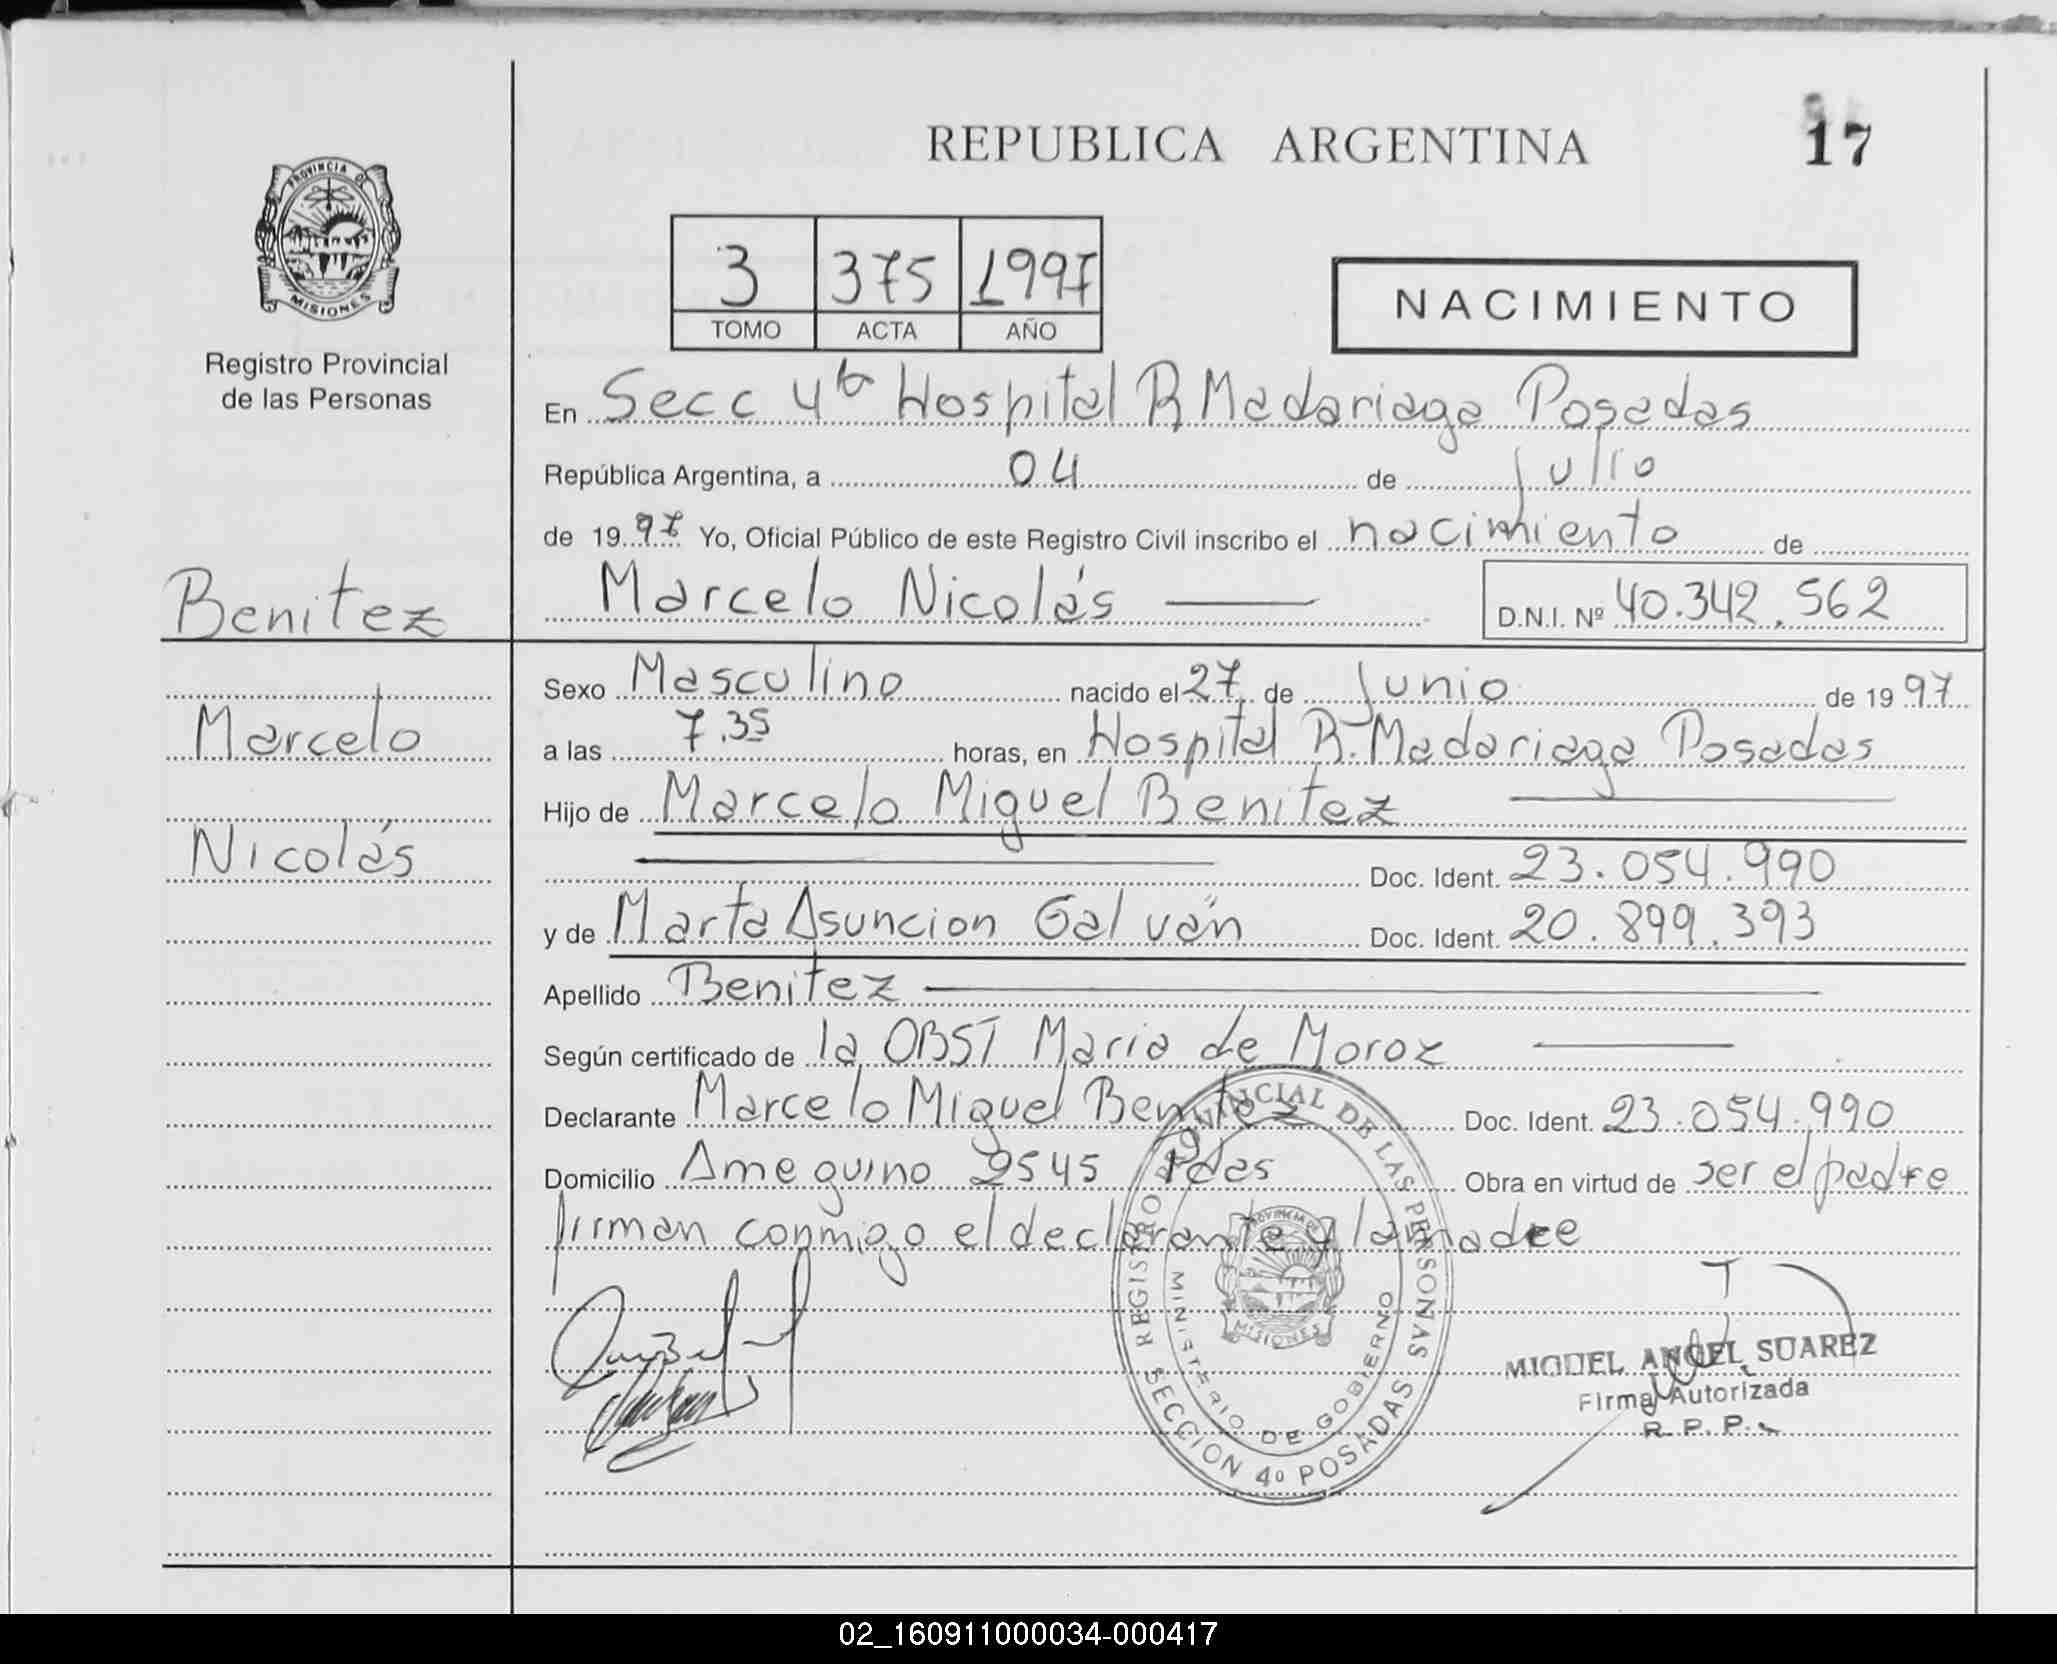 REPUBLICA ARGENTINA
17
PROVINCIA DE
MISIONES
Registro Provincial
de las Personas
3 375 1997
TOMO ACTA AÑO
NACIMIENTO
En Secc 4ta Hospital R Madariaga Posadas
República Argentina, a 04 de julio
de 19 97 Yo, Oficial Público de este Registro Civil inscribo el nacimiento de
Marcelo Nicolás
D.N.I. Nº 40.342.562
Benitez
Marcelo
Nicolás
Sexo Masculino nacido el 27 de Junio de 19 97
a las 7.35 horas, en Hospital R. Madariaga Posadas
Hijo de Marcelo Miguel Benitez
Doc. Ident. 23.054.990
y de Marta Asuncion Galván Doc. Ident. 20.899.393
Apellido Benitez
Según certificado de la OBST Maria de Moroz
Declarante Marcelo Miguel Benitez Doc. Ident. 23.054.990
Domicilio Ameguino 2545 Pdas Obra en virtud de ser el padre
firman conmigo el declarante y la madre
REGISTRO PROVINCIAL DE LAS PERSONAS
MINISTERIO DE GOBIERNO
PROVINCIA DE
MISIONES
SECCION 4º POSADAS
MIGUEL ANGEL SUAREZ
Firma Autorizada
R. P. P.
02_160911000034-000417